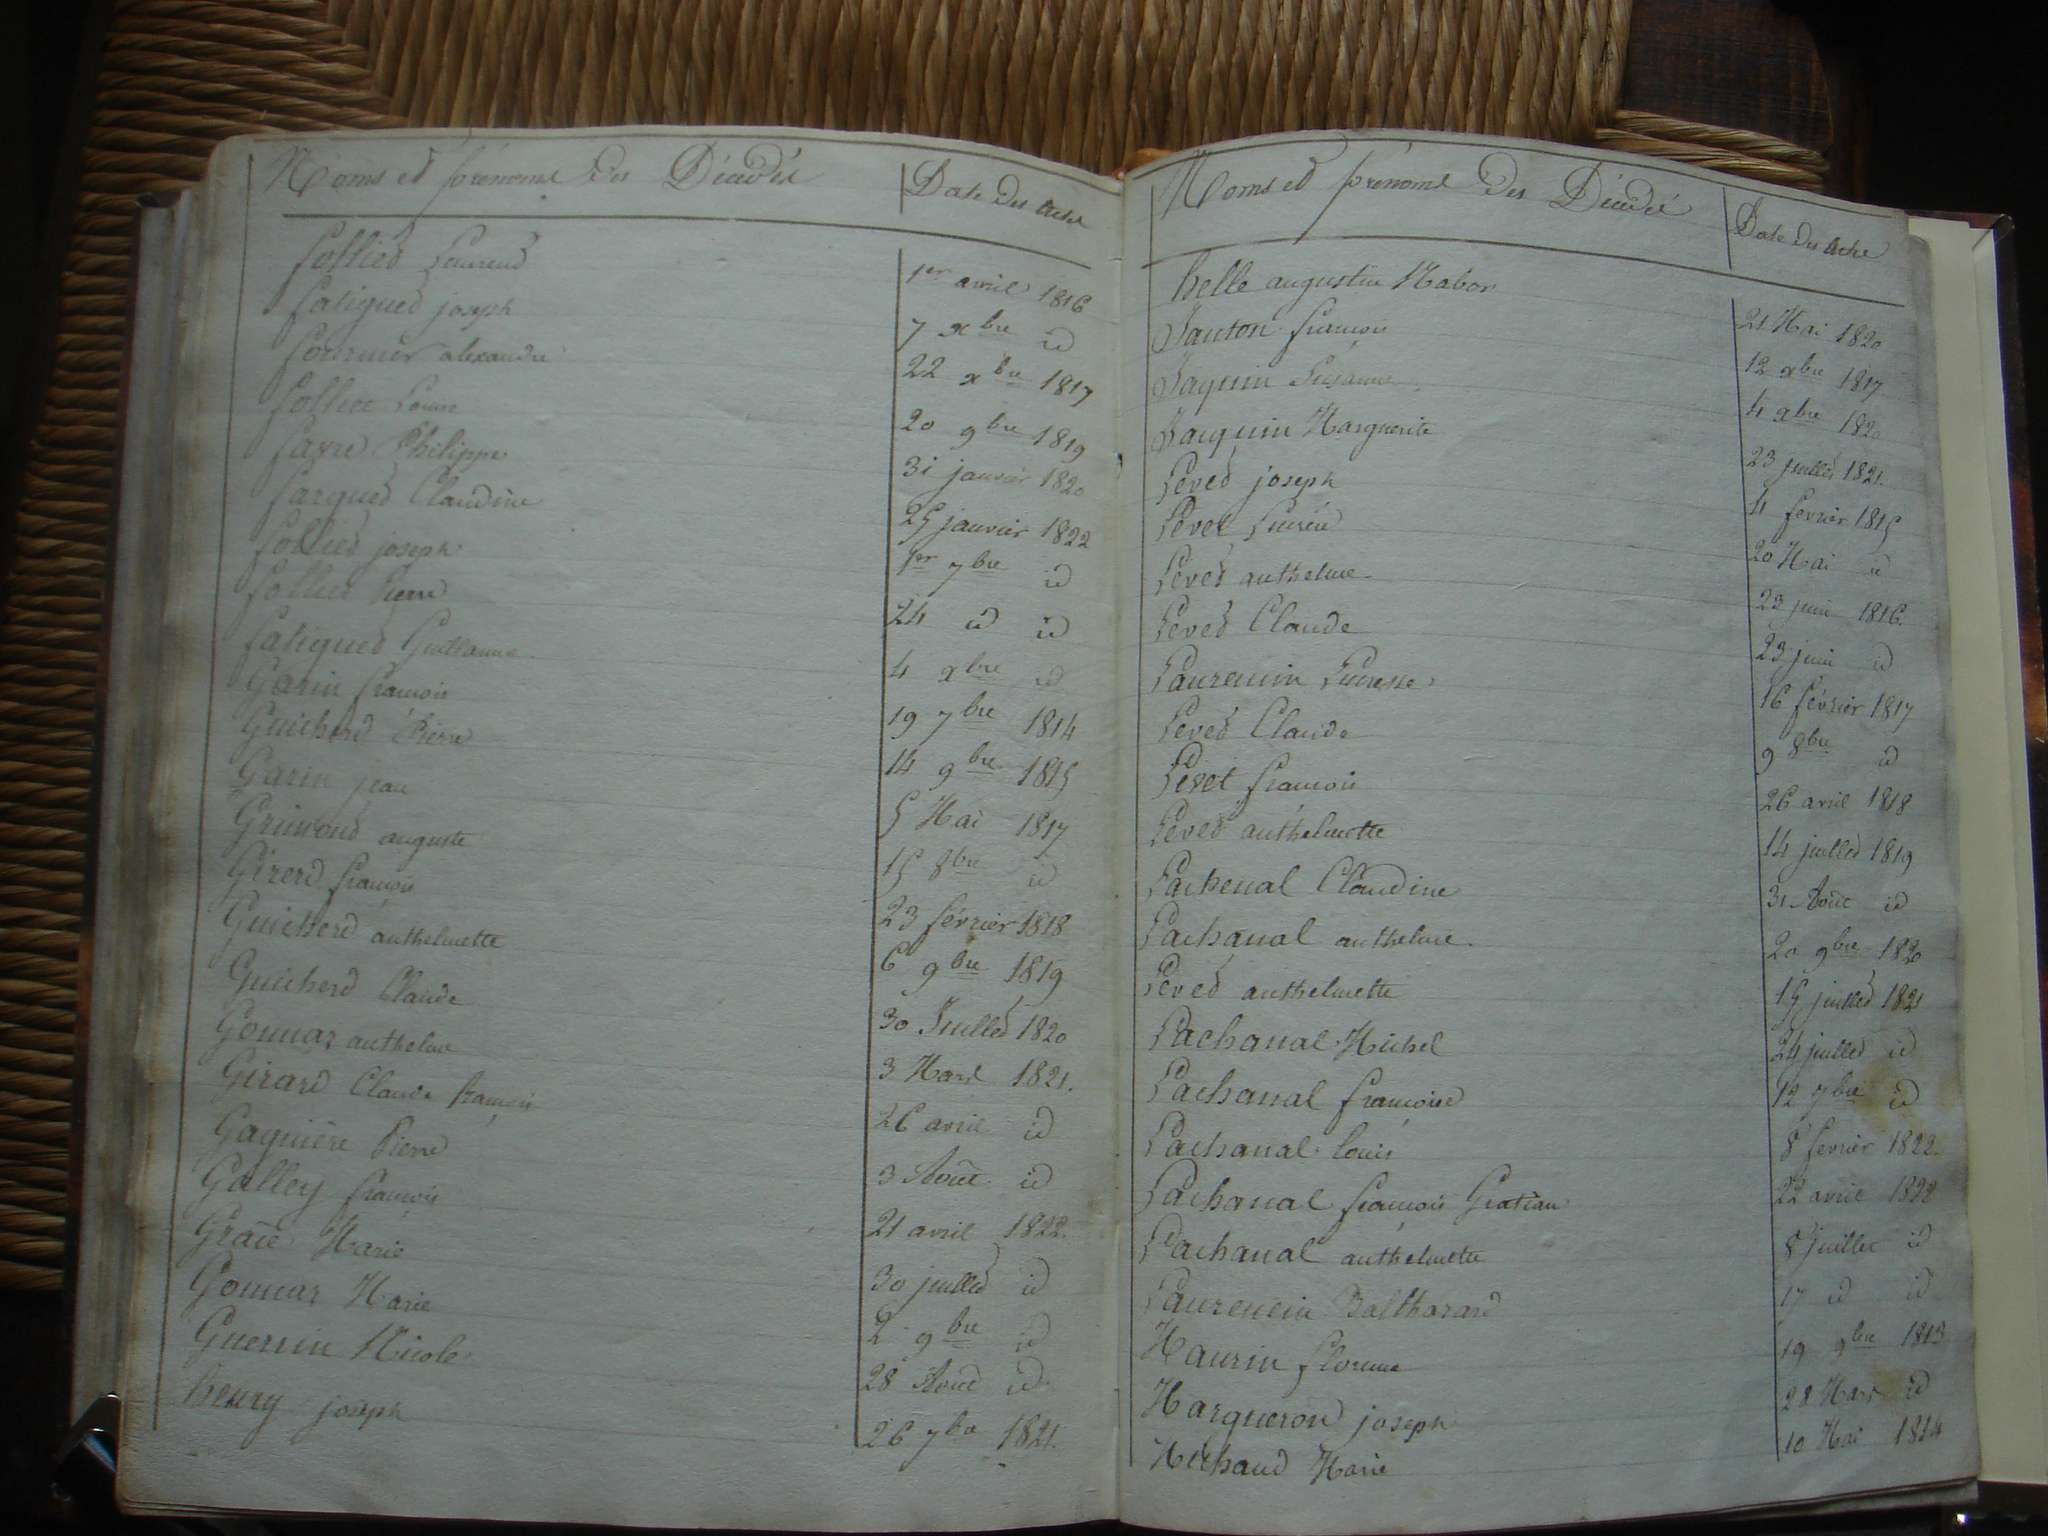 Noms et prénoms des Décédés Date des actes
follied Laurend 1er avril 1816
fatigued joseph 7 xbre id
fournier alexandre 22 xbre 1817
follier Louise 20 9bre 1819
favre Philippe 31 janvier 1820
fargued Claudine 25 janvier 1822
follied joseph 1er 7bre id
follied Pierre 24 id id
fatigued Guillaume 4 xbre id
Garin françois 19 7bre 1814
Guicherd Pierre 14 9bre 1815
Garin jean 5 Mai 1817
Grimond auguste 15 8bre id
Girerd françois 23 février 1818
Guicherd anthelmette 6 9bre 1819
Guicherd Claude 30 Juilled 1820
Gonnar anthelme 3 Mars 1821.
Girard Claude françois 26 avril id
Gagnière Pierre 3 Aout id
Galley françois 21 avril 1822.
Marie 30 juilled id
Gonnar Marie 2 9bre id
Guerrin Nicole 28 Aout id
henry joseph 26 7bre 1821.
Noms et prénoms des Décédés Date des actes
helle augustin Nabor 21 Mai 1820
Janton françois 12 xbre 1817
Jaquin Susanne 4 xbre 1820
Jacquin Marguerite 23 juilled 1821.
Leved joseph 4 fevrier 1815
Levet 20 Mai id
Leved anthelme 23 juin 1816.
Leved Claude 23 juin id
Laurencin 16 février 1817
Leved Claude 9 8bre id
Levet françois 26 avril 1818
Leved anthelmette 14 juilled 1819
Lachenal Claudine 31 Aout id
Lachanal anthelme 20 9bre 1820
Leved anthelmette 15 juilled 1821
Lachanal Michel 24 juilled id
Lachanal françoise 12 7bre id
Lachanal louis 8 fevrier 1822.
Lachanal françois Gratian 22 avril 1822
Lachanal anthelmette 8 juillet id
Laurencin Balthazard 17 id id
Maurin 19 9bre 1813
Margueron joseph 28 Mars id
Michaud Marie 10 Mai 1814